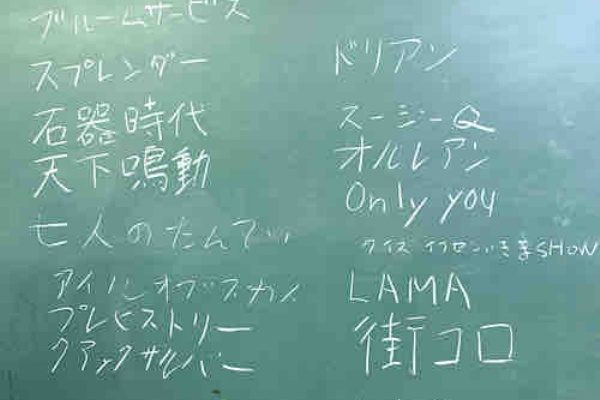 ブルームサービス
スプレンダー
石器時代
天下鳴動
七人のたんてい
アイルオブスカイ
プレヒストリー
クアックサルバー
ドリアン
スージーQ
オルレアン
Only you
クイズ SHOW
LAMA
街コロ